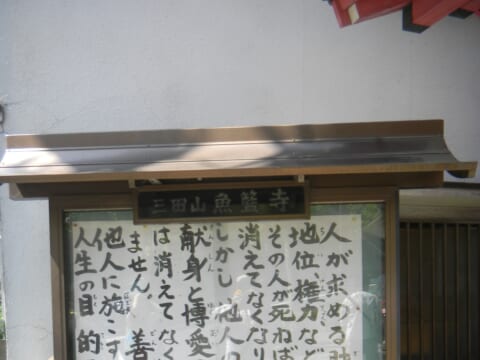 三田山 魚籃寺
人が求める
地位、権力など
その人が死ねば
消えてなくなり
しかし、他人の
献身と博愛
は消えてなく
ません。善
他人に施こす
人生の目的